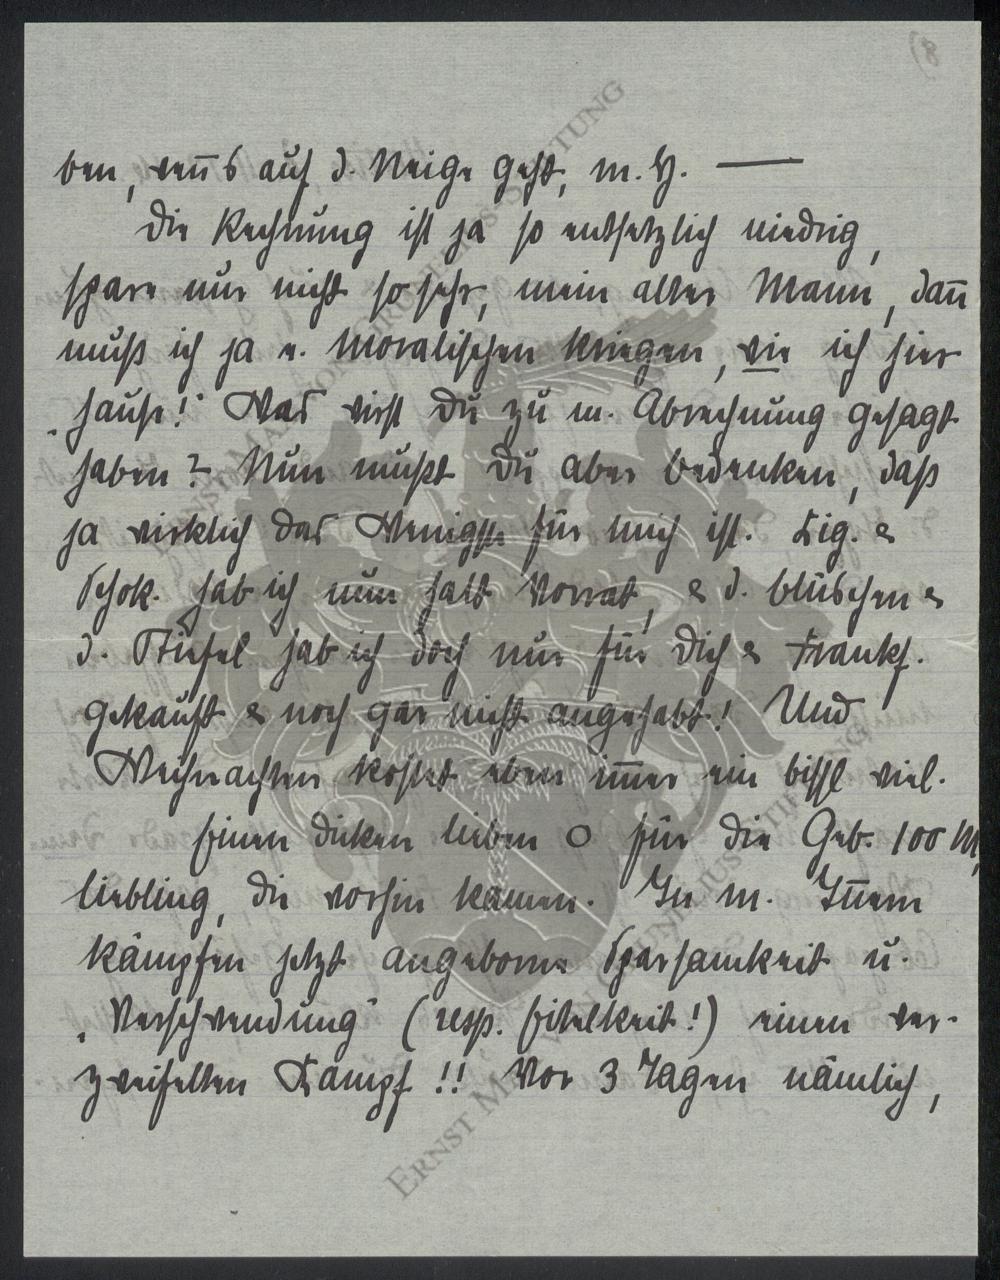 8)
ben, wen̄s auf d. Neige geht, m. H. —
Die Rechnung ist ja so entsetzlich niedrig,
spare nur nicht so sehr, mein alter Mann, dan̄
muß ich ja e. Moralischen kriegen, wie ich hier
„hause!“ Was wirst Du zu m. Abrechnung gesagt
haben? Nun mußt Du aber bedenken, daß
ja wirklich das Wenigste für mich ist. Zig. &
Schok. hab ich nun halt Vorrat, & d. blüschen &
d. Stiefel hab ich doch nur für Dich & Frankf.
gekauft & noch gar nicht angehabt! Und
Weihnachten kostet eben im̄er ein bissl viel.
Einen dicken lieben O für die Geb. 100 M,
liebling, die vorhin kamen. In m. In̄ern
kämpfen jetzt angeborne Sparsamkeit u.
„Verschwendung“ (resp. Eitelkeit!) einen ver-
zweifelten Kampf!! Vor 3 Tagen nämlich,
ERNST MARTIN VON CORNELIUS-STIFTUNG
ERNST MARTIN VON CORNELIUS-STIFTUNG